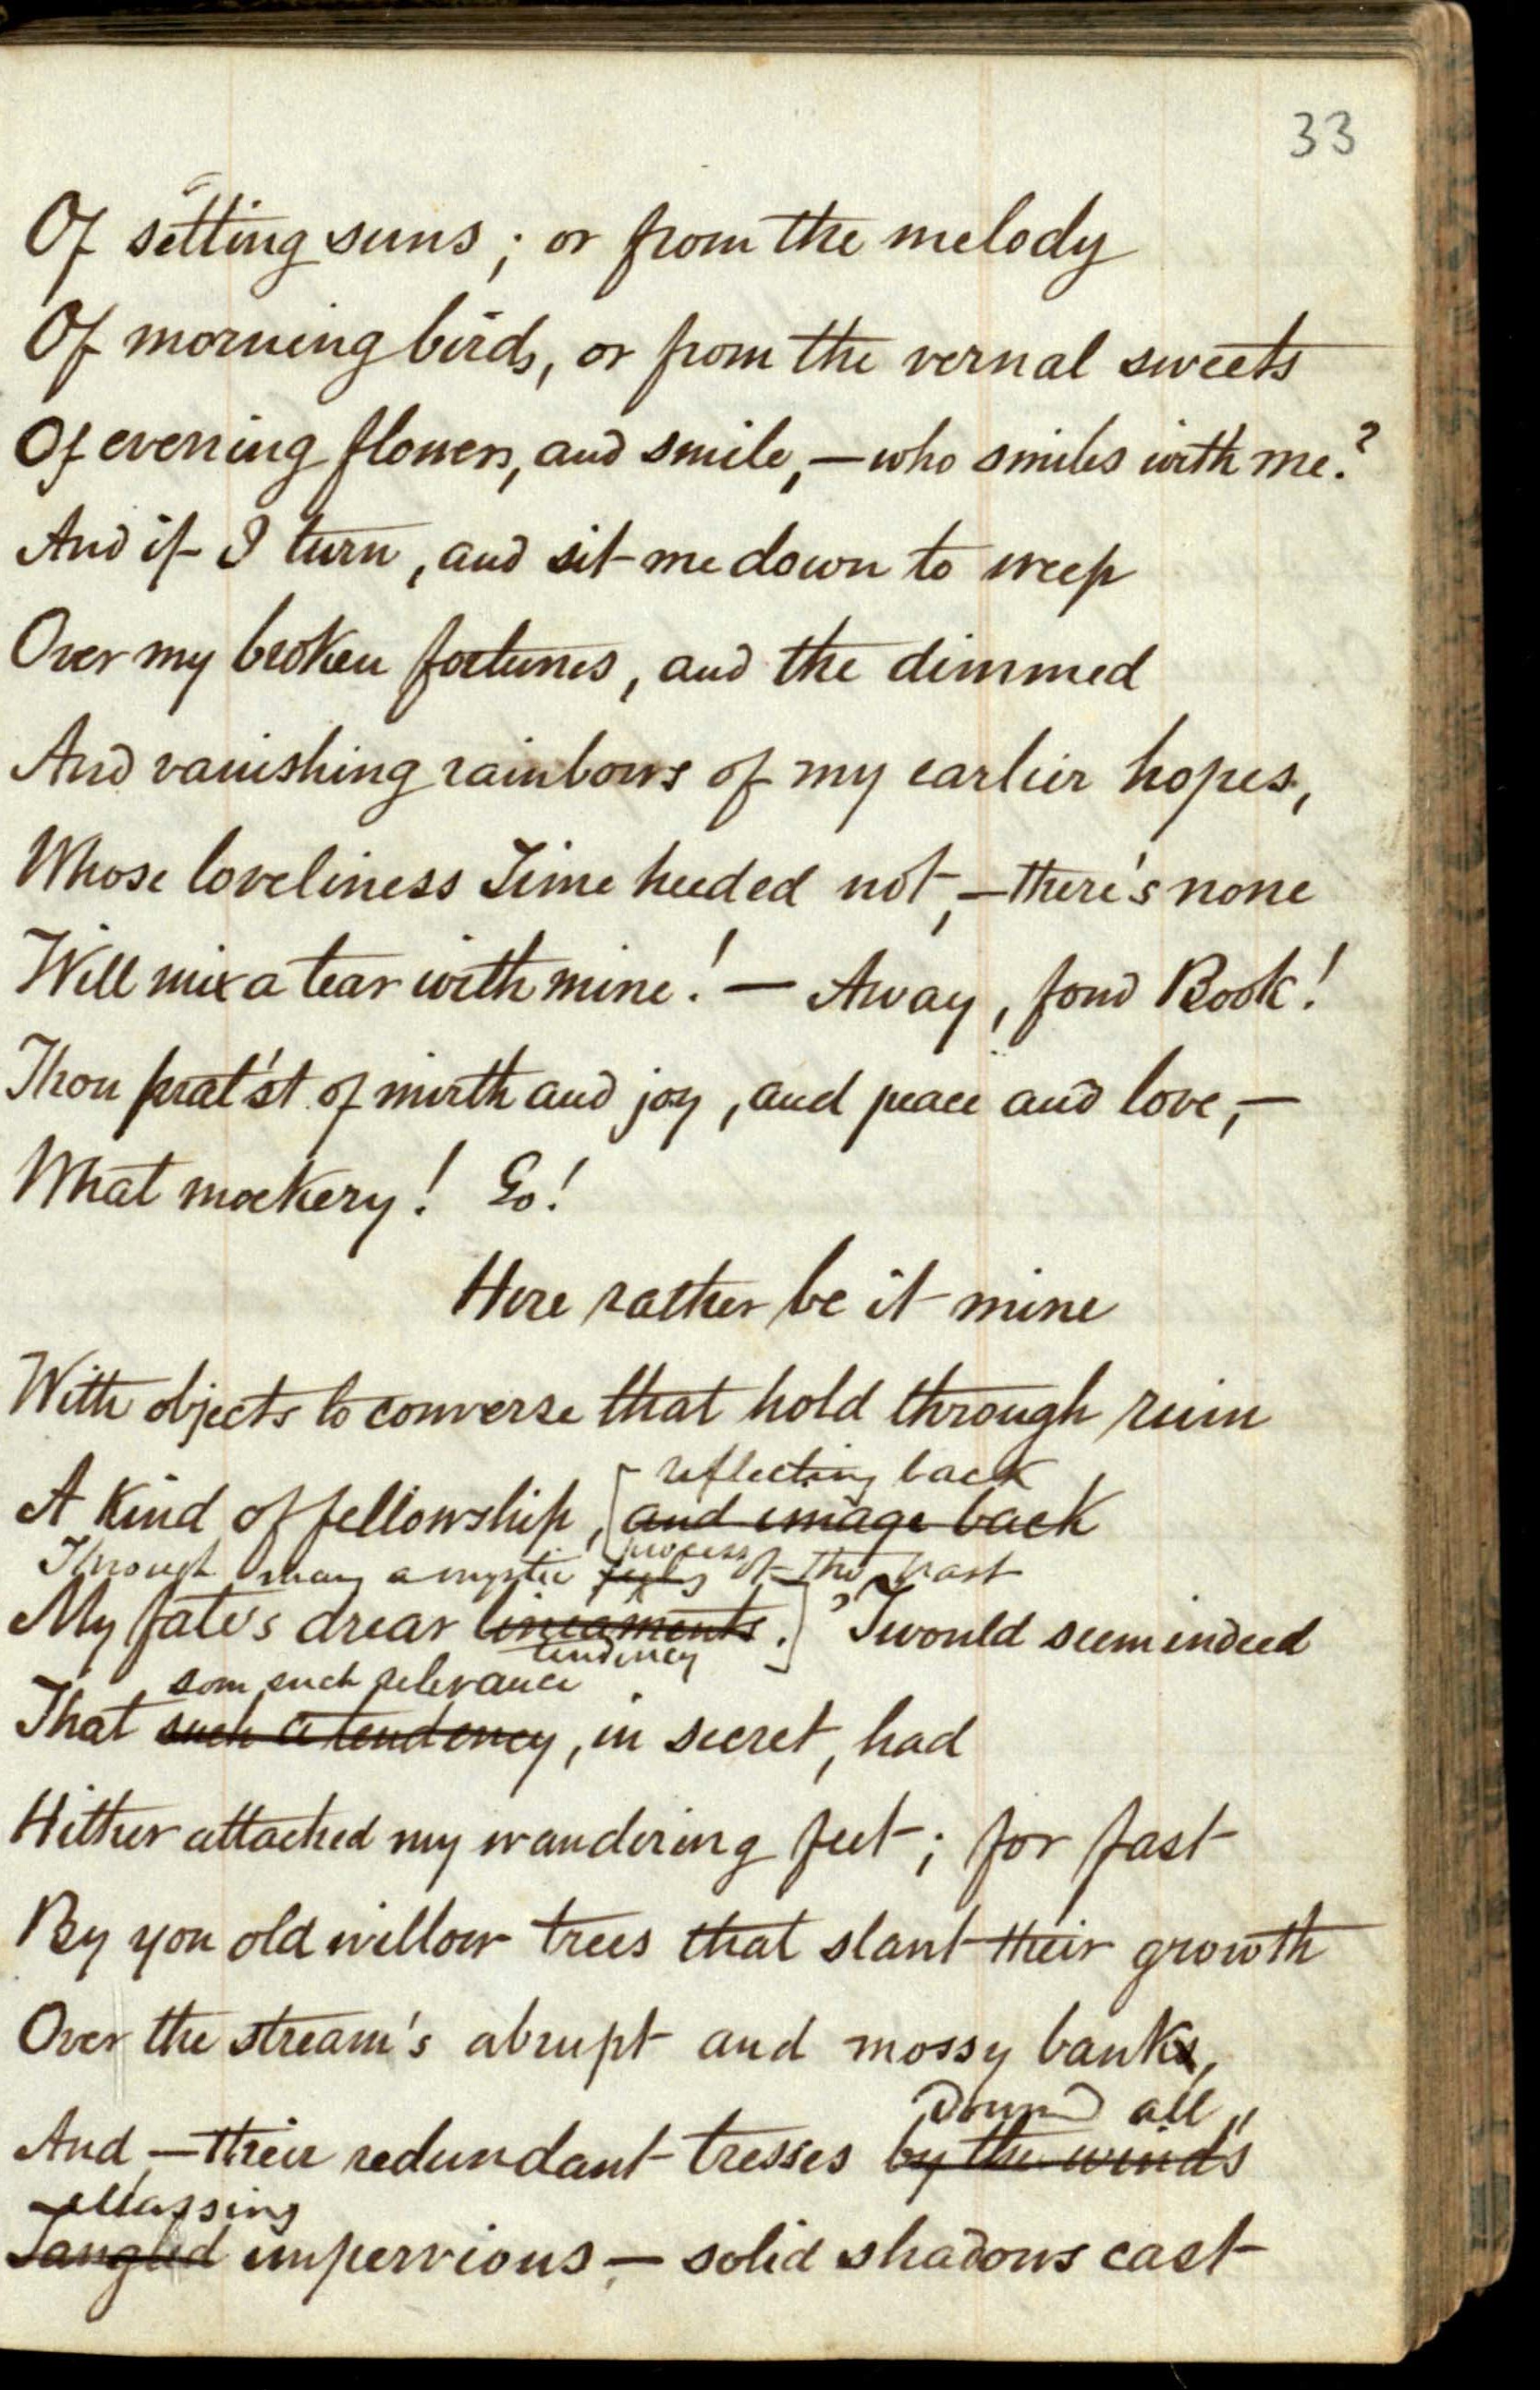 33
Of setting suns; or from the melody
Of morning birds, or from the vernal sweets
Of evening flowers, and smile, — who smiles with me?
And if I turn, and sit me down to weep
Over my broken fortunes, and the dimmed
And vanishing rainbows of my earlier hopes,
Whose loveliness Time heeded not, — there's none
Will mix a tear with mine! — Away, fond Book!
Thou prat'st of mirth and joy, and peace and love, —
What mockery! Go!
Here rather be it mine
With objects to converse that hold through ruin
reflecting back
A kind of fellowship, [and image back
process
Through many a mystic of the past
My fate's drear lineaments.] 'Twould seem indeed
tendency
som such relevance
That such a tendency, in secret, had
Hither attached my wandering feet; for fast
By yon old willow trees that slant their growth
Over the stream's abrupt and mossy banks,
Down all
And, — their redundant tresses by the winds
Massing
Tangled impervious, — solid shadows cast